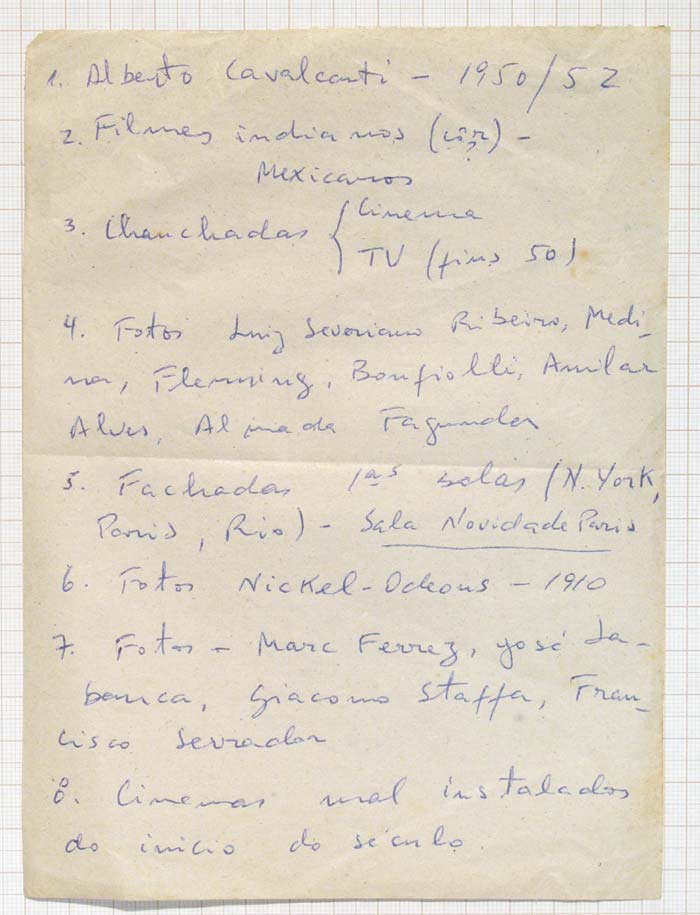 1. Alberto Cavalcanti - 1950/52
2. Filmes indianos (côr) -
Mexicanos
3. Chanchadas { Cinema
TV (fins 50)
4. Fotos Luiz Severiano Ribeiro, Medi-
na, Fleming, Bonfiolli, Amilar
Alves, Almada Fagundes
5. Fachadas 1as salas (N. York,
Paris, Rio) - Sala Novidade Paris
6. Fotos Nickel-Odeons - 1910
7. Fotos - Marc Ferrez, José La-
banca, Giacomo Staffa, Fran-
cisco Serrador
8. Cinemas mal instalados
do início do século.